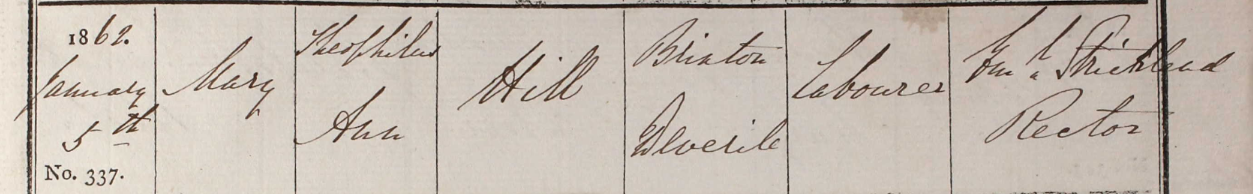 1862.
January
5th
No. 337.
Mary
Theophilus
Ann
Hill
Brixton
Deverile
Labourer
Strickland
Rector